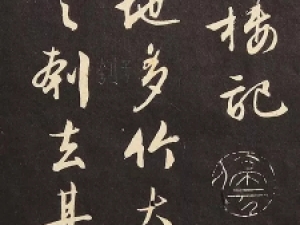 樓記
地多竹大
刺去其